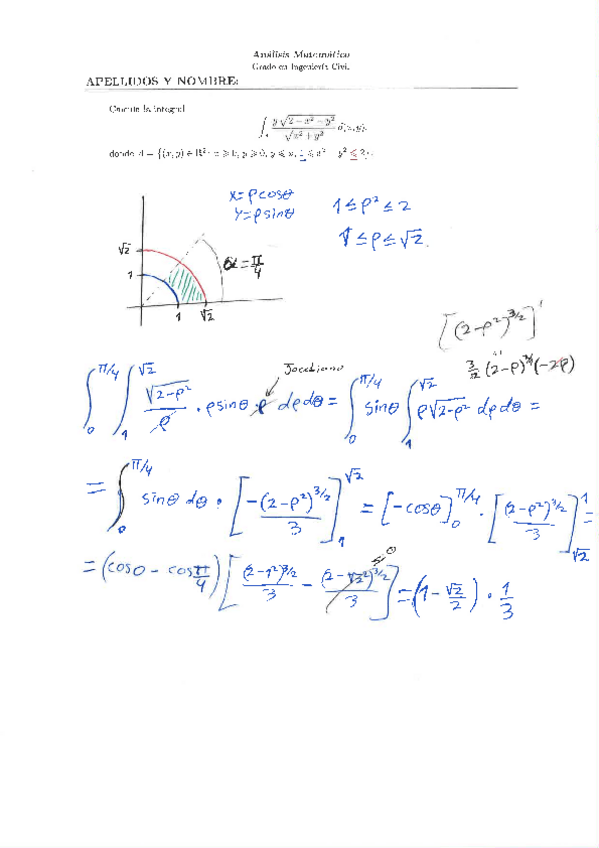 Análisis Matemático
Grado en Ingeniería Civil
APELLIDOS Y NOMBRE:
Calcule la integral
∫_A y√(2−x²−y²) / √(x²+y²) d(x,y),
donde A = {(x, y) ∈ ℝ² : x ⩾ 0, y ⩾ 0, y ⩽ x, 1 ⩽ x² + y² ⩽ 2}.
x=ρcosθ
y=ρsinθ
1≤ρ²≤2
1≤ρ≤√2.
√2
1
1 √2
α=π/4
[(2-ρ²)^{3/2}]'
3/2 (2-ρ)^{3/2} (-2ρ)
Jacobiano
∫_0^{π/4} ∫_1^{√2} √(2-ρ²)/ρ · ρsinθ·ρ dρdθ = ∫_0^{π/4} sinθ ∫_1^{√2} ρ√(2-ρ²) dρdθ =
= ∫_0^{π/4} sinθ dθ · [-(2-ρ²)^{3/2}/3]_1^{√2} = [-cosθ]_0^{π/4} · [(2-ρ²)^{3/2}/3]_{√2}^1 =
= (cos0 - cos π/4) [(2-1²)^{3/2}/3 - (2-√2²)^{3/2}/3] = (1-√2/2) · 1/3
0